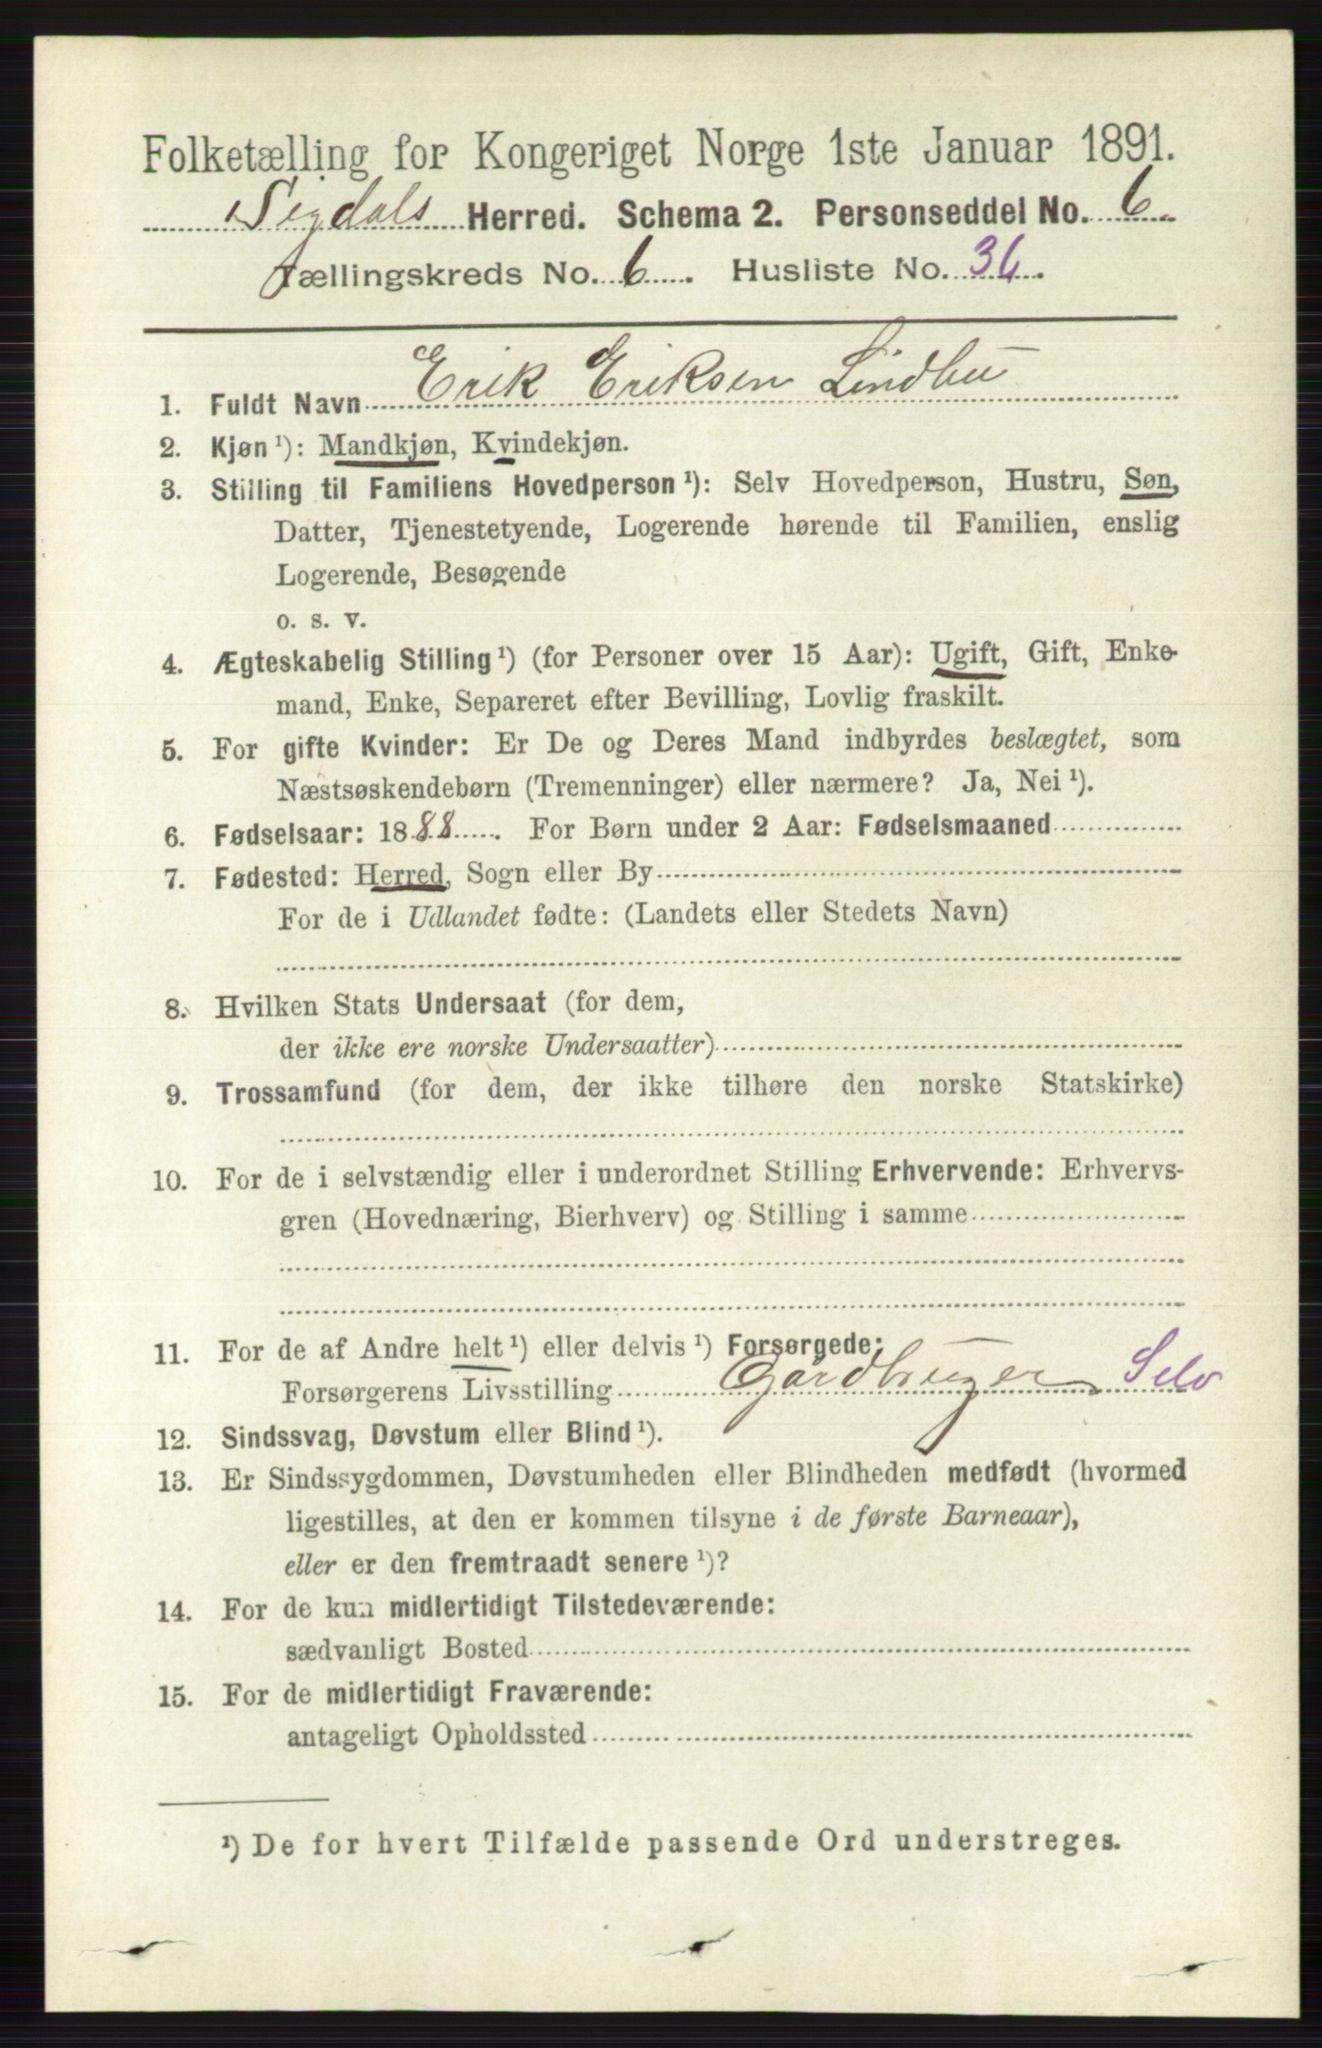 Folketælling for Kongeriget Norge 1ste Januar 1891.
Sigdals Herred. Schema 2. Personseddel No. 6.
Tællingskreds No. 6. Husliste No. 36.
1. Fuldt Navn Erik Eriksen Lindbu
2. Kjøn¹): Mandkjøn, Kvindekjøn.
3. Stilling til Familiens Hovedperson¹): Selv Hovedperson, Hustru, Søn,
Datter, Tjenestetyende, Logerende hørende til Familien, enslig
Logerende, Besøgende
o. s. v.
4. Ægteskabelig Stilling¹) (for Personer over 15 Aar): Ugift, Gift, Enke-
mand, Enke, Separeret efter Bevilling, Lovlig fraskilt.
5. For gifte Kvinder: Er De og Deres Mand indbyrdes beslægtet, som
Næstsøskendebørn (Tremenninger) eller nærmere? Ja, Nei¹).
6. Fødselsaar: 1888. For Børn under 2 Aar: Fødselsmaaned
7. Fødested: Herred, Sogn eller By
For de i Udlandet fødte: (Landets eller Stedets Navn)
8. Hvilken Stats Undersaat (for dem,
der ikke ere norske Undersaatter)
9. Trossamfund (for dem, der ikke tilhøre den norske Statskirke)
10. For de i selvstændig eller i underordnet Stilling Erhvervende: Erhvervs-
gren (Hovednæring, Bierhverv) og Stilling i samme
11. For de af Andre helt¹) eller delvis¹) Forsørgede:
Forsørgerens Livsstilling Gårdbruger Selv
12. Sindssvag, Døvstum eller Blind¹).
13. Er Sindssygdommen, Døvstumheden eller Blindheden medfødt (hvormed
ligestilles, at den er kommen tilsyne i de første Barneaar),
eller er den fremtraadt senere¹)?
14. For de kun midlertidigt Tilstedeværende:
sædvanligt Bosted
15. For de midlertidigt Fraværende:
antageligt Opholdssted
¹) De for hvert Tilfælde passende Ord understreges.